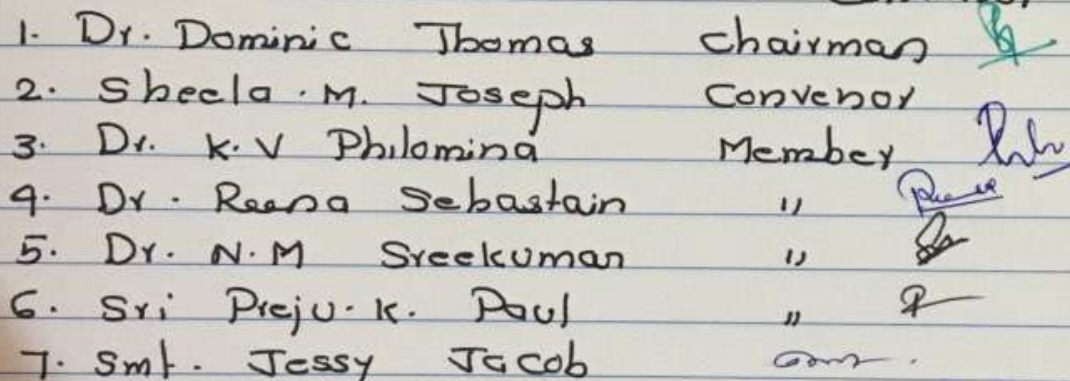 1. Dr. Dominic Thomas Chairman
2. Sheela. M. Joseph Convenor
3. Dr. K. V Philomina Member
4. Dr. Reena Sebastain "
5. Dr. N. M Sreekumar "
6. Sri Preju. K. Paul "
7. Smt. Jessy Jacob